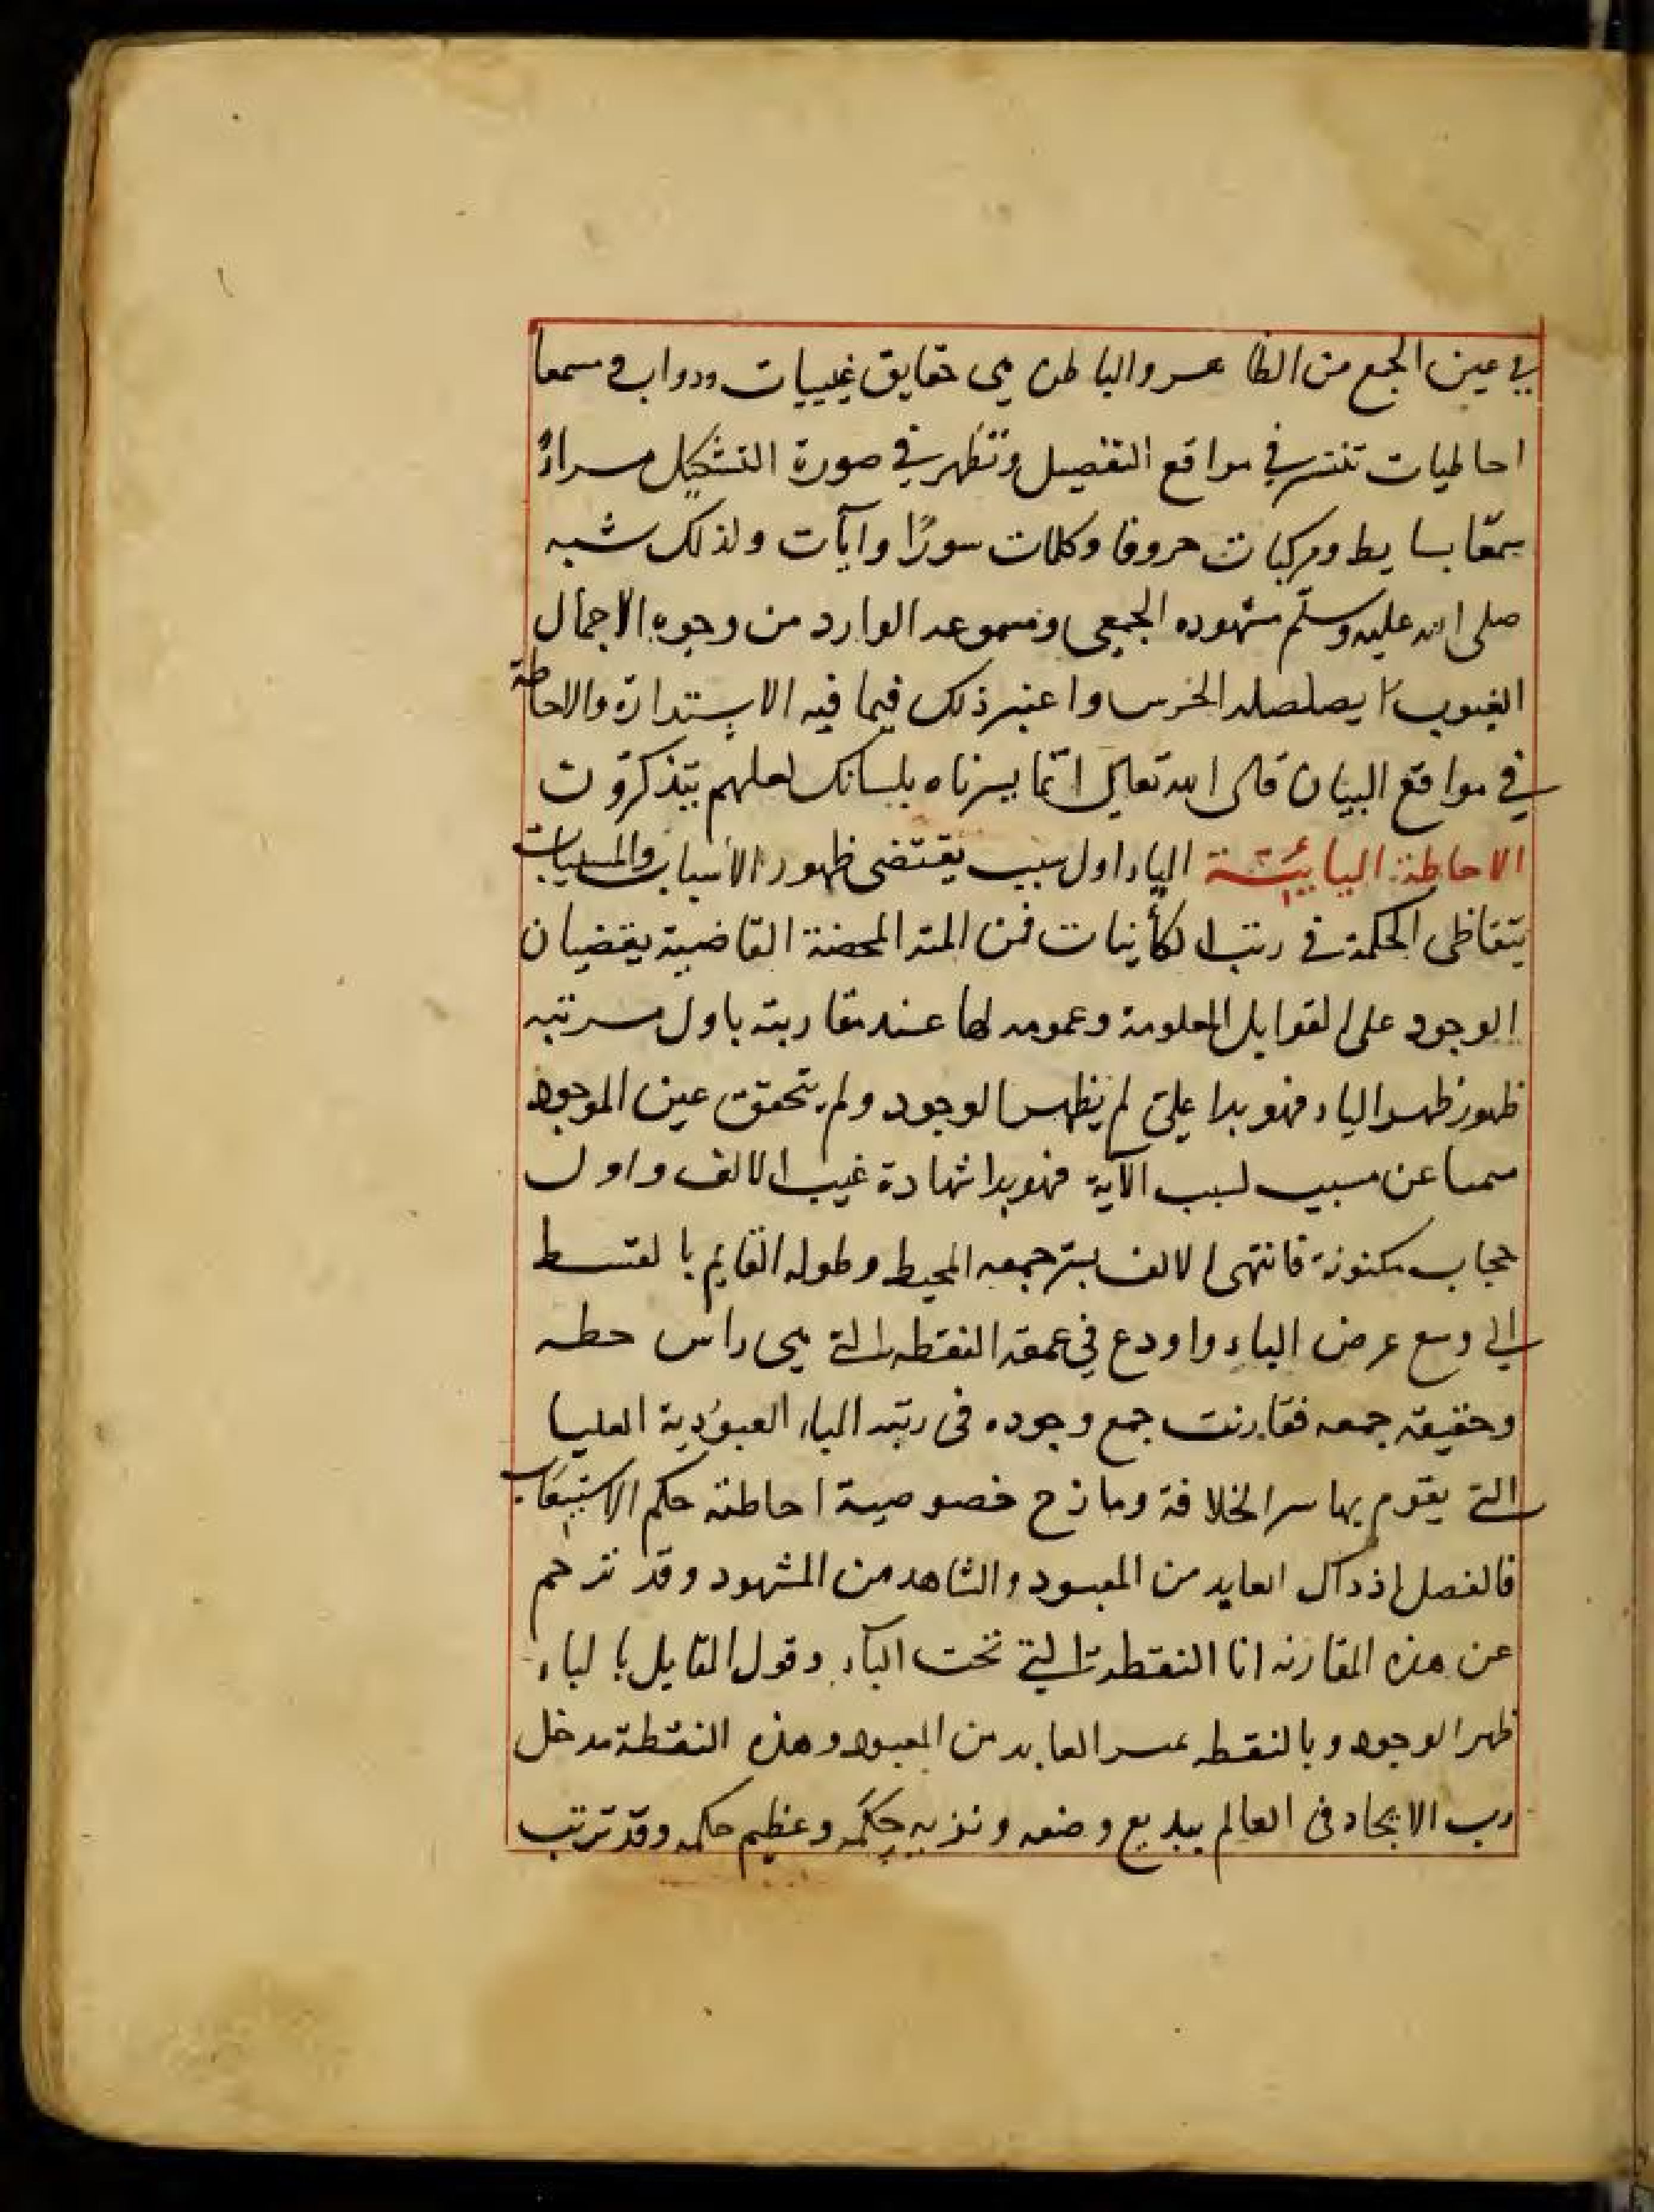 في عين الجمع من الظاهر والباطن هي حقايق غيبيات ودواب في سمعا
احاطيات تنتشر في مواقع التفصيل وتظهر في صورة التشكيل مراءً
سمعًا بسايط ومركبات حروفا وكلمات سورًا وآيات ولذلك شبه
صلى الله عليه وسلّم مشهوده الجمعي ومسموعه الوارد من وجوه الاجمال
الغيوب بصلصله الخرس واعتبر ذلك فيما فيه الاستدارة والاحاطة
في مواقع البيان قال الله تعالى انّما يسرناه بلسانك لعلهم يتذكرون
الاحاطة البائية الباء اول سبب يقتضى ظهور الأسباب والمسببات
يتقاظى الحكمة في رتب الكأينات فمن المنة المحضة القاضية بفيضان
الوجود على القوابل المعلومة وعمومه لها عند مقاربته باول مرتبه
ظهور ظهر الباء فهو بدا على لم يظهر الوجود ولم يتحقق عين الموجود
سمعا عن مسبب لسبب الآية فهو بدا شهادة غيب الالف واول
حجاب مكنونة فانتهى الالف بسّر جمعه المحيط وطوله القايم بالقسط
الى وسع عرض الباء واودع في عمقه النقطه التي هي راس خطه
وحقيقة جمعه فقارنت جمع وجوده فى رتبه الباء العبوديّة العليا
التي يقوم بها سر الخلافة ومازج خصوصية احاطته حكم الاستيعاب
فانفصل اذ ذاك العابد من المعبود والشاهد من المشهود وقد ترجم
عن هذه المقارنه انا النقطة التي تحت البآء وقول القايل بالباء
ظهر الوجود وبالنقطه عسر العابد من المعبود وهذه النقطة مدخل
رب الايجاد فى العالم ببديع وضعه ونزيه حكمه وعظيم حكمه وقد ترتب